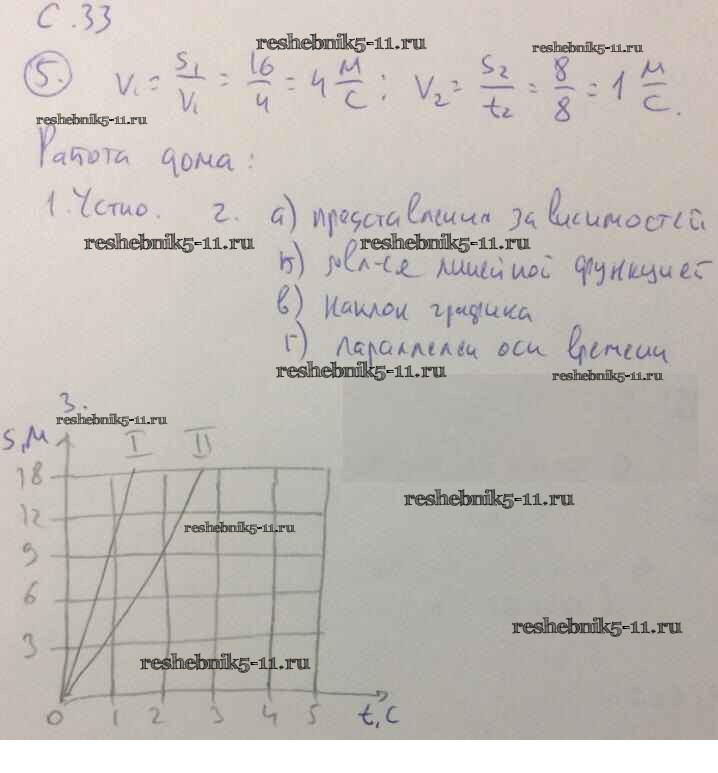 С.33
reshebnik5-11.ru
reshebnik5-11.ru
5. V₁ = S₁/V₁ = 16/4 = 4 м/с; V₂ = S₂/t₂ = 8/8 = 1 м/с.
reshebnik5-11.ru
Работа дома:
1. Устно. 2. а) представления зависимостей
reshebnik5-11.ru
reshebnik5-11.ru
б) явл-ся линейной функцией
в) наклон графика
г) параллелен оси времени
reshebnik5-11.ru
reshebnik5-11.ru
3.
reshebnik5-11.ru
S, м I II
18
reshebnik5-11.ru
12
reshebnik5-11.ru
9
6
reshebnik5-11.ru
3
reshebnik5-11.ru
0 1 2 3 4 5 t, с